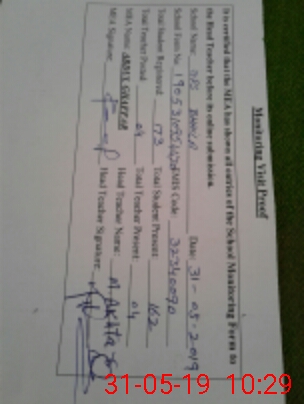 Monitoring Visit Proof
It is certified that the MEA has shown all entries of the School Monitoring Form to
the Head Teacher before its online submission.
School Name: GPS Date: 31-05-2019
School Form No: EMIS Code: 32340090
Total Student Registered: 173 Total Student Present: 162
Total Teacher Posted: 04 Total Teacher Present: 04
MEA Name: ABDUL GHAFFAR Head Teacher Name:
MEA Signature: Head Teacher Signature:
31-05-19 10:29